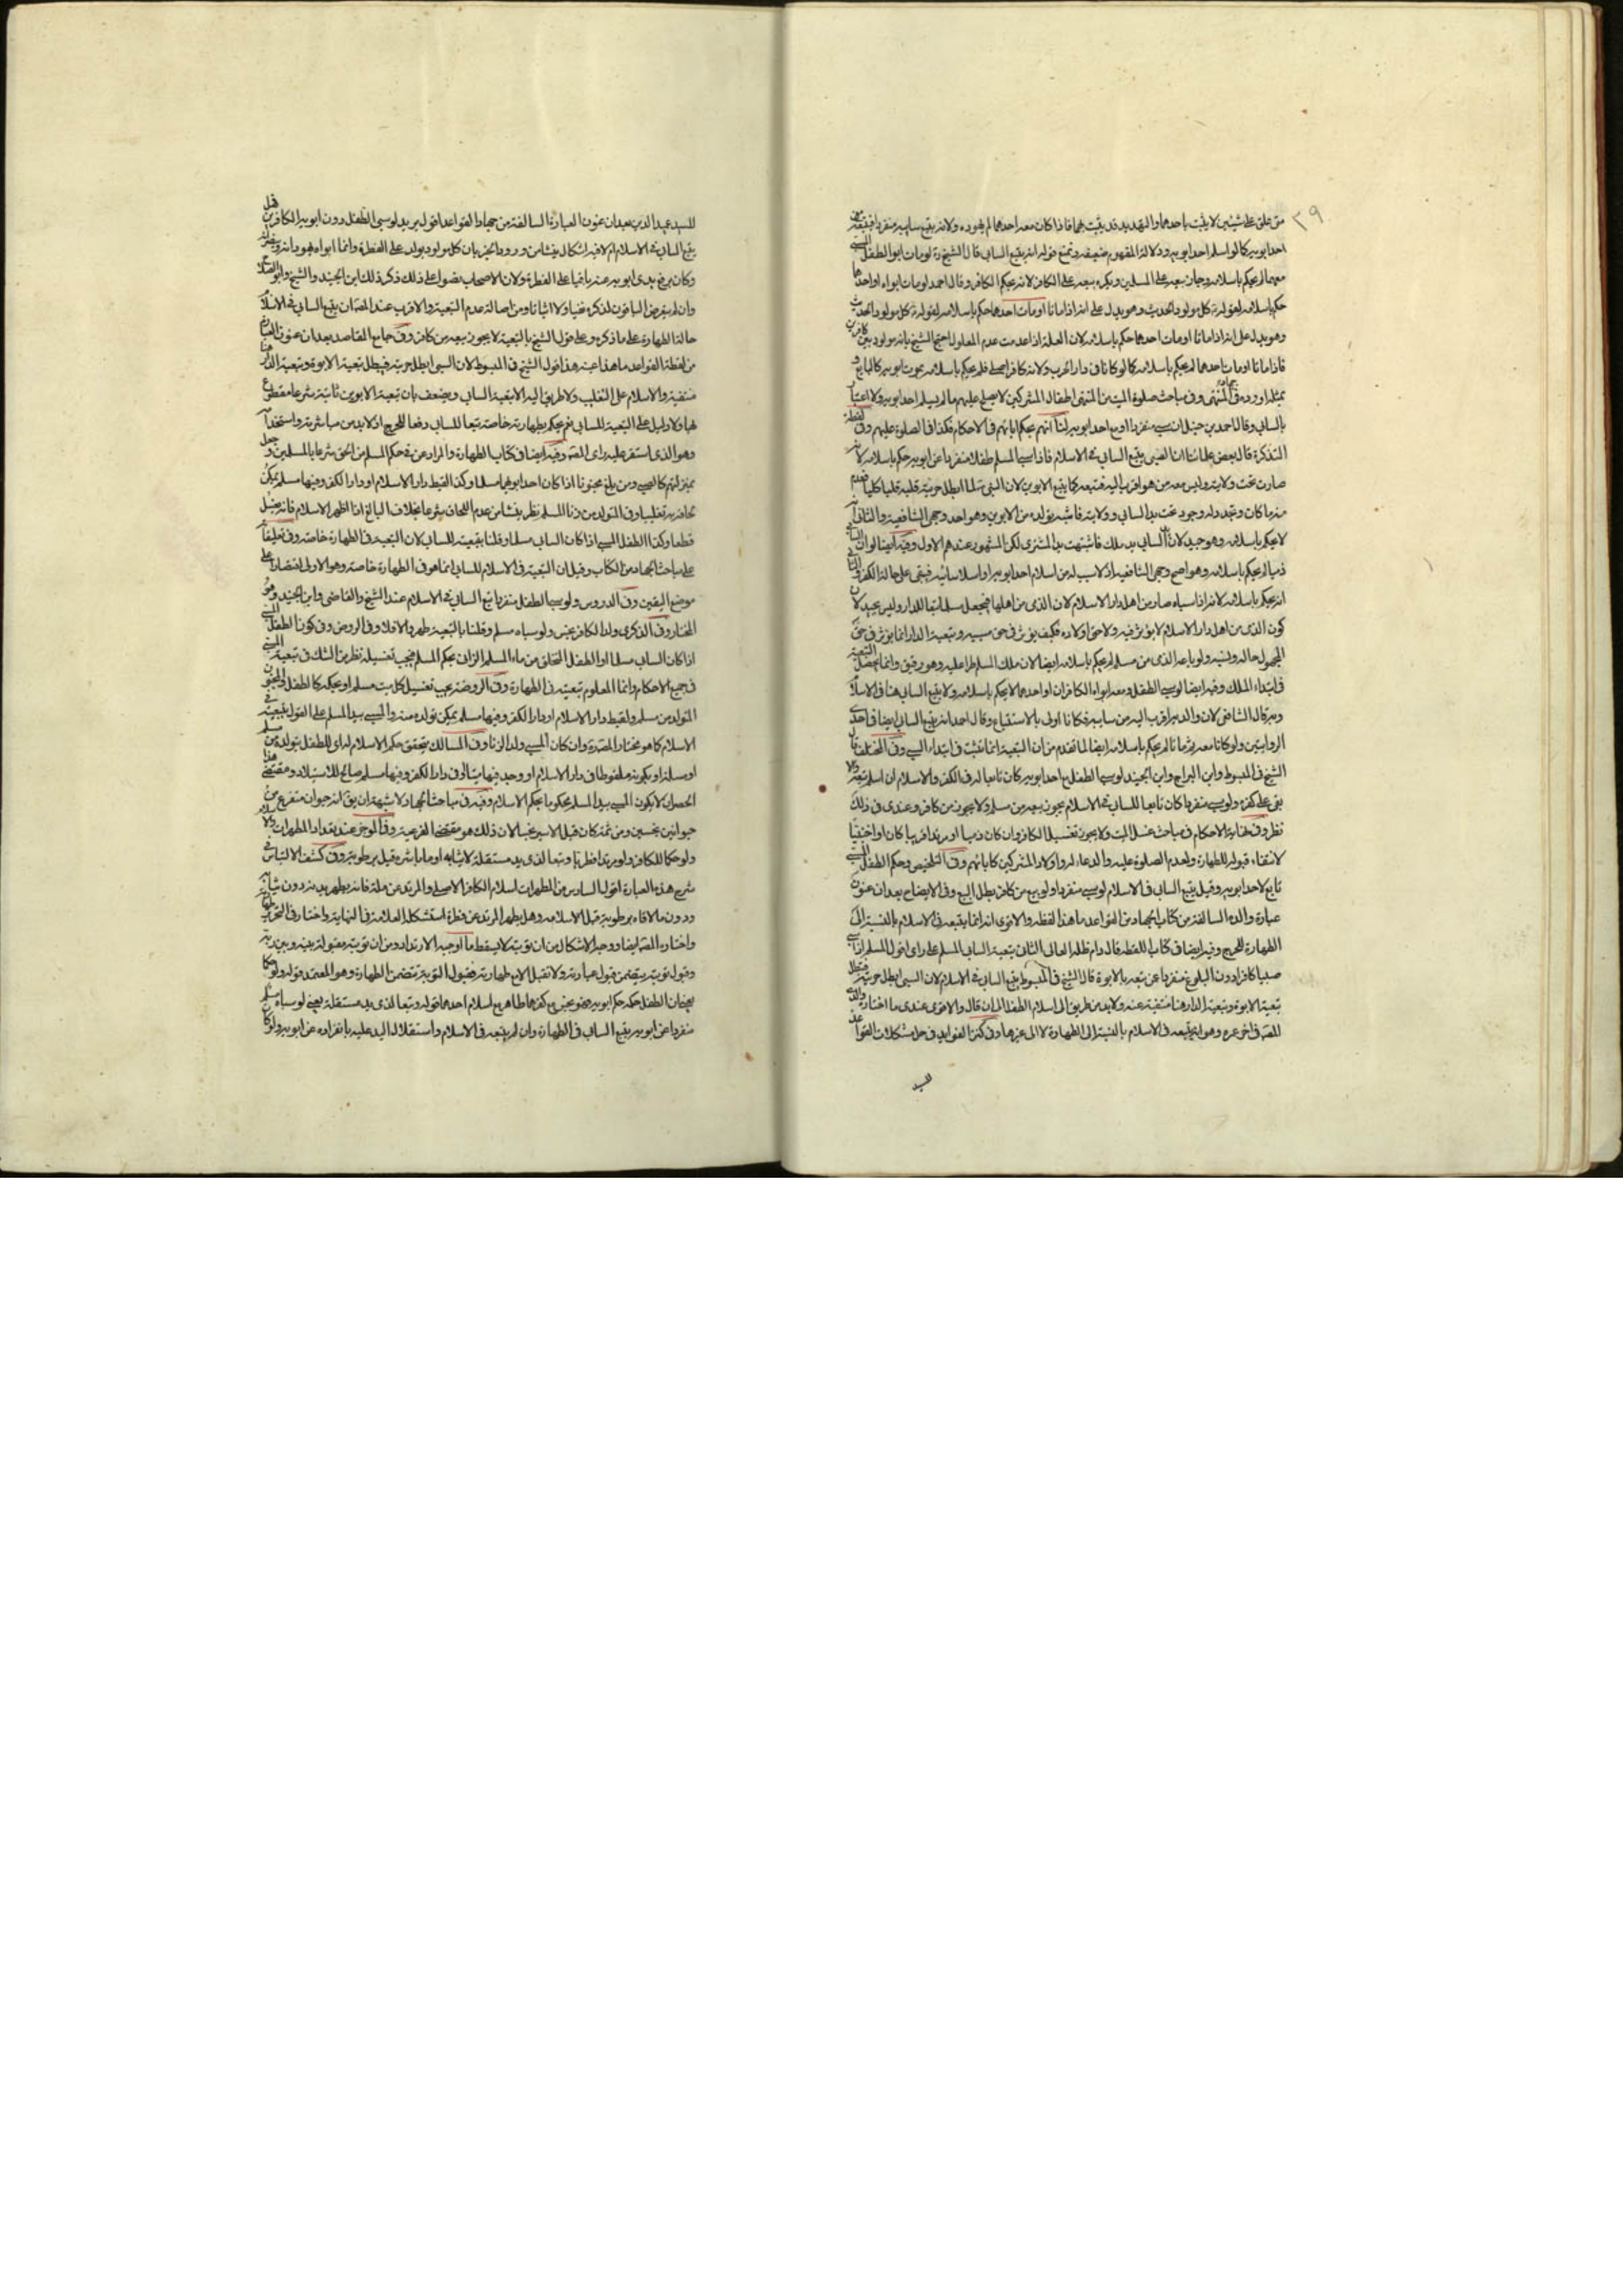 ٣٩
متى علق على شيئين لا يثبت باحدهما والتهديد قد يثبت بهما فاذا كان معه احدهما لم يهوده ولانه يتبع سابيه منفردا فيتبعه مع
احد ابويه كما لو اسلم احد ابويه ودلالة المفهوم ضعيفة ونمنع قوله انه يتبع السابي قال الشيخ ره لو مات ابوا الطفل المسبي
معهما لم يحكم باسلامه وجاز بيعه على المسلمين ويكره بيعه على الكافر لانه بحكم الكافر وقال احمد لو مات ابواه او احدهما
حكم باسلامه لقوله كل مولود الحديث وهو يدل على انه اذا ماتا او مات احدهما حكم باسلامه لقوله كل مولود الحديث
وهو يدل على انه اذا ماتا او مات احدهما حكم باسلامه لان العلة اذا عدمت عدم المعلول احتج الشيخ بانه مولود بين كافرين
فاذا ماتا او مات احدهما لم يحكم باسلامه كما لو كانا في دار الحرب ولانه كافر اصلي فلم يحكم باسلامه بموت ابويه كالبالغ و
بمثله اورده في المنتهى وفي مباحث صلوة الميت من المنتهى اطفال المشركين لا يصلى عليهم ما لم يسلم احد ابويه ولا اعتبار
بالسابي وقال احمد بن حنبل ان سبي منفردا او مع احد ابويه لنا انهم بحكم ابائهم في الاحكام فكذا في الصلوة عليهم وفي لقطة
التذكرة قال بعض علمائنا ان الصبي يتبع السابي في الاسلام فاذا سبى المسلم طفلا منفردا عن ابويه حكم باسلامه لانه
صار تحت ولايته وليس معه من هو اقرب اليه فتبعه كما يتبع الابوين لان السبي لما ابطل حريته قلبه قلبا كليا فعدم
عما كان وتجدد له وجود تحت يد السابي وولايته فاشبه تولده من الابوين وهو احد وجهي الشافعية والثاني انه
لا يحكم باسلامه وهو جيد لان يد السابي يد ملك فاشبهت يد المشتري لكن المشهور عندهم الاول وفيه ايضا لو ان السابي
ذميا لم يحكم باسلامه وهو اصح وجهي الشافعية اذ لا سبب له من اسلام احد ابويه او اسلام سابيه فبقي على حالة الكفر والثاني
انه يحكم باسلامه لانه اذا سباه صار من اهل دار الاسلام لان الذمي من اهلها فيجعل مسلما تبعا للدار وليس بجيد لان
كون الذمي من اهل دار الاسلام لا يؤثر فيه ولا في حق اولاده فكيف يؤثر في حق مسبيه وتبعية الدار انما يؤثر في حق
المجهول حاله ونسبه ولو باعه الذمي من مسلم لم يحكم باسلامه ايضا لان ملك المسلم طرأ عليه وهو رقيق وانما تحصل التبعية
في ابتداء الملك وفيه ايضا لو سبي الطفل ومعه ابواه الكافران او احدهما لا يحكم باسلامه ولا يتبع السابي هنا في الاسلام
وبه قال الشافعي لان والديه اقرب اليه من سابيه فكانا اولى بالاستتباع وقال احمد انه يتبع السابي ايضا في احدى
الروايتين ولو كانا معه ثم ماتا لم يحكم باسلامه ايضا لما تقدم من ان التبعية انما تثبت في ابتداء السبي وفي المختلف قال
الشيخ في المبسوط وابن البراج وابن الجنيد لو سبي الطفل مع احد ابويه كان تابعا له في الكفر والاسلام ان اسلم تبعه والا
بقي على كفره ولو سبي منفردا كان تابعا للسابي في الاسلام يجوز بيعه من مسلم ولا يجوز من كافر وعندي في ذلك
نظر وفي نهاية الاحكام في مباحث غسل الميت ولا يجوز تغسيل الكافر وان كان ذميا او مرتدا قريبا كان او اجنبيا
لانتفاء قبوله للطهارة ولعدم الصلوة عليه والدعاء له واولاد المشركين كابائهم وفي التلخيص وحكم الطفل المسبي
تابع لاحد ابويه وقيل يتبع السابي في الاسلام لو سبي منفردا ولو بيع من كافر بطل البيع وفي الايضاح بعد ان عنون
عبارة والده السالفة من كتاب الجهاد من القواعد ما هذا لفظه والاقوى انه انما يتبعه في الاسلام بالنسبة الى
الطهارة للحرج وفيه ايضا في كتاب اللقطة قال دام ظله العالي الثاني تبعية السابي المسلم على راي اقول المسلم اذا سبى
صبيا كافرا دون البلوغ منفردا عن تبعيته بالابوة قال الشيخ في المبسوط يتبع السابي في الاسلام لان السبي ابطل حريته فتبطل
تبعية الابوة وتبعية الدار هنا منتفية عنه ولا بد من طريق الى اسلام الطفل الى ان قال والاقوى عندي ما اختاره والدي
المصه في اخر عمره وهو انه يتبعه في الاسلام بالنسبة الى الطهارة لا الى غيرها وفي كنز الفوائد في حل مشكلات القواعد
للسيد
للسيد عميد الدين بعد ان عنون العبارة السالفة من جهاد القواعد اقول يريد لو سبي الطفل دون ابويه الكافرين فهل
يتبع السابي في الاسلام ام لا فيه اشكال ينشا من ورود الخبر بان كل مولود يولد على الفطرة وانما ابواه يهودانه وينصرانه
وكان برفع يدي ابويه عنه باقيا على الفطرة ولان الاصحاب نصوا على ذلك ذكر ذلك ابن الجنيد والشيخ وابو الصلاح
وان لم يتعرض الباقون لذكره نفيا ولا اثباتا ومن اصالة عدم التبعية والاقرب عند المصه ان يتبع السابي في الاسلام
حالة الطهارة على ما ذكره وعلى قول الشيخ بالتبعية لا يجوز بيعه من كافر وفي جامع المقاصد بعد ان عنون العبارة
من لقطة القواعد ما هذا عينه هذا قول الشيخ في المبسوط لان السبي ابطل حريته فيبطل تبعية الابوة وتبعية الدار هنا
منتفية والاسلام على التغليب ولا طريق اليه الا تبعية السابي ويضعف بان تبعية الابوين ثابتة شرعا مقطوع
بها ولا دليل على التبعية للسابي نعم يحكم بطهارته خاصة تبعا للسابي دفعا للحرج اذ لا بد من مباشرته واستخدامه
وهو الذي استقر عليه راي المصه وفيه ايضا في كتاب الطهارة والمراد بمن في حكم المسلم من الحق شرعا بالمسلمين وجعل
بمنزلتهم كالصبي ومن بلغ مجنونا اذا كان احد ابويهما مسلما وكذا لقيط دار الاسلام او دار الكفر وفيها مسلم يمكن
الحاقه به تغليبا وفي المتولد من زنا المسلم نظر ينشا من عدم اللحاق شرعا بخلاف البالغ اذا اظهر الاسلام فانه يغسل
قطعا وكذا الطفل المسبي اذا كان السابي مسلما وقلنا بتبعيته للسابي لان التبعية في الطهارة خاصة وفي تعليقاته
على مباحث الجهاد من الكتاب وقيل ان التبعية في الاسلام للسابي انما هو في الطهارة خاصة وهو الاولى اقتصارا على
موضع اليقين وفي الدروس ولو سبي الطفل منفردا تبع السابي في الاسلام عند الشيخ والقاضي وابن الجنيد وهو
المختار وفي الذكرى ولد الكافر نجس ولو سباه مسلم وقلنا بالتبعية طهر والا فلا وفي الروض وفي كون الطفل المسبي
اذا كان السابي مسلما او الطفل المتخلق من ماء المسلم الزاني بحكم المسلم فيجب تغسيله نظر من الشك في تبعية المسبي
في جميع الاحكام وانما المعلوم تبعيته في الطهارة وفي الروضة يجب تغسيل كل ميت مسلم او بحكمه كالطفل والمجنون
المتولد من مسلم ولقيط دار الاسلام او دار الكفر وفيها مسلم يمكن تولده منه والمسبي بيد المسلم على القول بتبعيته في
الاسلام كما هو مختار المصه وان كان المسبي ولد الزنا وفي المسالك يتحقق حكم الاسلام له اي للطفل بتولده من مسلم
او مسلمة او بكونه ملقوطا في دار الاسلام او وجد فيها ميتا او في دار الكفر وفيها مسلم صالح للاستيلاد ومقتضى هذا
الحصر ان لا يكون المسبي بيد المسلم محكوما بحكم الاسلام وفيه في مباحث الجهاد لا شبهة ان يق انه حيوان متفرع من
حيوانين نجسين ومن ثمة كان قبل الاسير نجسا لان ذلك هو مقتضى الفرعية وفي الموجز عند تعداد المطهرات والاسلام
ولو حكما للكافر ولو مرتدا فطريا وتبعا لذي يد مستقلة لا ثيابه او ما باشره قبل برطوبة وفي كشف الالتباس في
شرح هذه العبارة اقول السادس من المطهرات اسلام الكافر الاصلي والمرتد عن ملة فانه يطهر بدنه دون ثيابه
ودون ما لاقاه برطوبة قبل الاسلام وهل يطهر المرتد عن فطرة استشكله العلامة في النهاية واختار في التحرير طهارته
واختاره المصه ايضا ووجه الاشكال من ان توبته لا يسقط ما اوجبه الارتداد ومن ان توبته مقبولة بينه وبين ربه
وقبول توبته يتضمن قبول عبادته ولا تقبل الا مع طهارته فقبول التوبة يتضمن الطهارة وهو المعتمد قوله ولو حكما
يعني ان الطفل حكمه حكم ابويه فهو نجس مع كفرهما طاهر مع اسلام احدهما قوله وتبعا لذي يد مستقلة يعني لو سباه مسلم
منفردا عن ابويه يتبع السابي في الطهارة وان لم يتبعه في الاسلام واستقلال اليد عليه بانفراده عن ابويه ولو كان